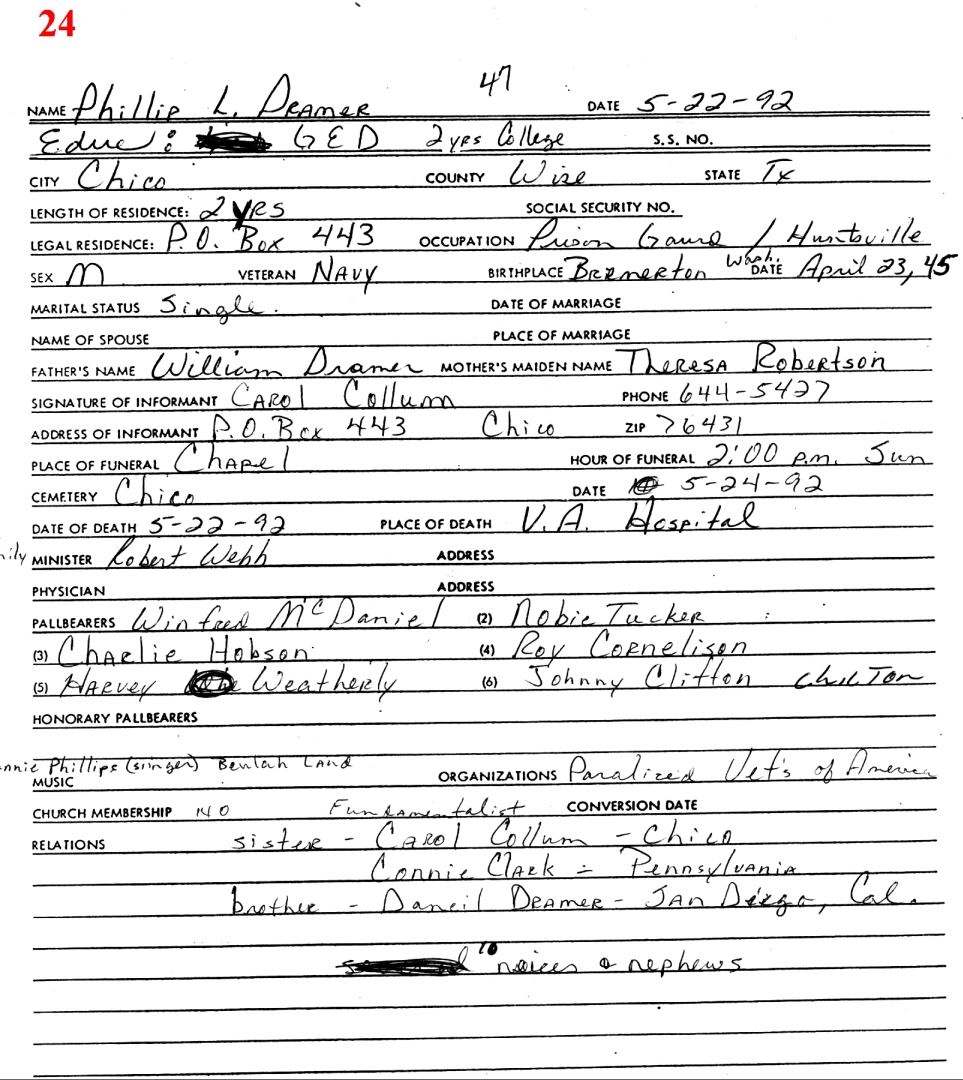 24
47
NAME Phillip L. Dramer DATE 5-22-92
Educ: GED 2 yrs College S.S. NO.
CITY Chico COUNTY Wise STATE Tx
LENGTH OF RESIDENCE: 2 YRS SOCIAL SECURITY NO.
LEGAL RESIDENCE: P.O. Box 443 OCCUPATION Prison Gaurd / Huntsville
SEX M VETERAN NAVY BIRTHPLACE Bremerton Wash. DATE April 23, 45
MARITAL STATUS Single. DATE OF MARRIAGE
NAME OF SPOUSE PLACE OF MARRIAGE
FATHER'S NAME William Dramer MOTHER'S MAIDEN NAME Theresa Robertson
SIGNATURE OF INFORMANT Carol Collum PHONE 644-5427
ADDRESS OF INFORMANT P.O. Box 443 Chico ZIP 76431
PLACE OF FUNERAL Chapel HOUR OF FUNERAL 2:00 p.m. Sun
CEMETERY Chico DATE 5-24-92
DATE OF DEATH 5-22-92 PLACE OF DEATH V.A. Hospital
MINISTER Robert Webb ADDRESS
PHYSICIAN ADDRESS
PALLBEARERS Winfred McDaniel (2) Nobie Tucker
(3) Charlie Hobson (4) Roy Cornelison
(5) Harvey Weatherly (6) Johnny Clifton
HONORARY PALLBEARERS
Phillips (singer) Beulah Land
MUSIC ORGANIZATIONS Paralized Vet's of America
CHURCH MEMBERSHIP NO Fundamentalist CONVERSION DATE
RELATIONS sister - Carol Collum - Chico
Connie Clark - Pennsylvania
brother - Daneil Dramer - San Diego, Cal.
10 neices & nephews